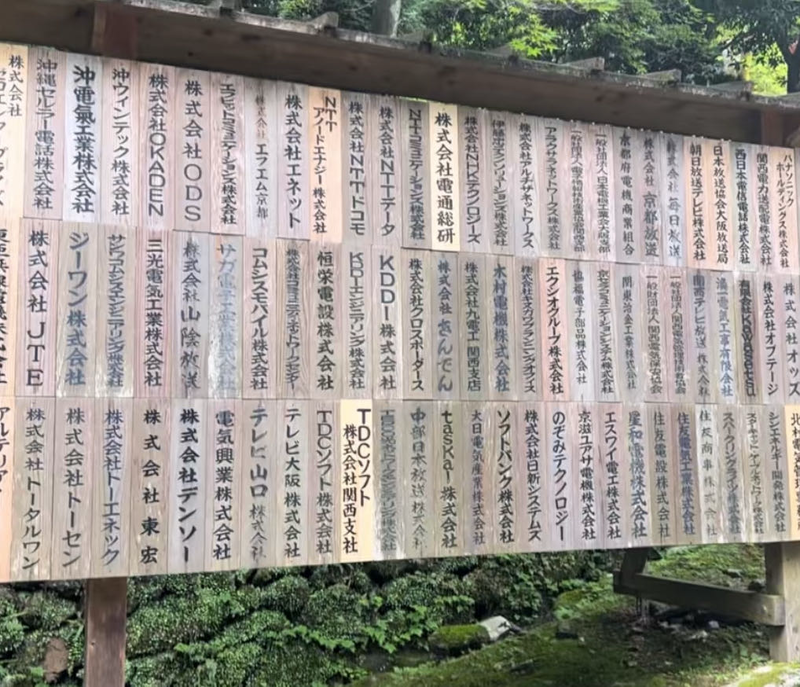 パナソニック ホールディングス株式会社
関西電力送配電株式会社
西日本電信電話株式会社
日本放送協会大阪放送局
朝日放送テレビ株式会社
株式会社 毎日放送
株式会社 京都放送
京都府電機商業組合
一般社団法人日本電機工業会大阪支部
アラクサラネットワークス株式会社
株式会社アルプスネットワークス
株式会社NHKテクノロジーズ
株式会社電通総研
NTTコミュニケーションズ株式会社
株式会社NTTデータ
株式会社NTTドコモ
NTTアノードエナジー株式会社
株式会社エネット
株式会社 エフエム京都
株式会社ODS
株式会社OKADEN
沖ウィンテック株式会社
沖電氣工業株式会社
沖縄セルラー電話株式会社
株式会社オッズ
株式会社オフテージ
関西テレビ放送 株式会社
関東冶金工業株式会社
京セラコミュニケーションシステム株式会社
協福電子部品株式会社
エウシオグループ株式会社
木村電機株式会社
株式会社九電工 関西支店
株式会社きんでん
株式会社クロスボーダース
KDDI株式会社
KDDIエンジニアリング株式会社
恒栄電設株式会社
コムシスモバイル株式会社
サガ電子工業株式会社
株式会社山陰放送
三光電気工業株式会社
サンワコムシスエンジニアリング株式会社
ジーワン株式会社
株式会社JTE
シンエネルギー開発株式会社
スパークリングライン株式会社
住友商事株式会社
住友電気工業株式会社
住友電設株式会社
星和電機株式会社
エスワイ電工株式会社
京滋ユアサ電機株式会社
のぞみテクノロジー
株式会社日新システムズ
ソフトバンク株式会社
大日電気産業株式会社
taskal 株式会社
中部日本放送株式会社
TDCソフト株式会社関西支社
TDCソフト株式会社
テレビ大阪株式会社
テレビ山口株式会社
電気興業株式会社
株式会社デンソー
株式会社 東宏
株式会社トーエネック
株式会社トーセン
株式会社トータルワン